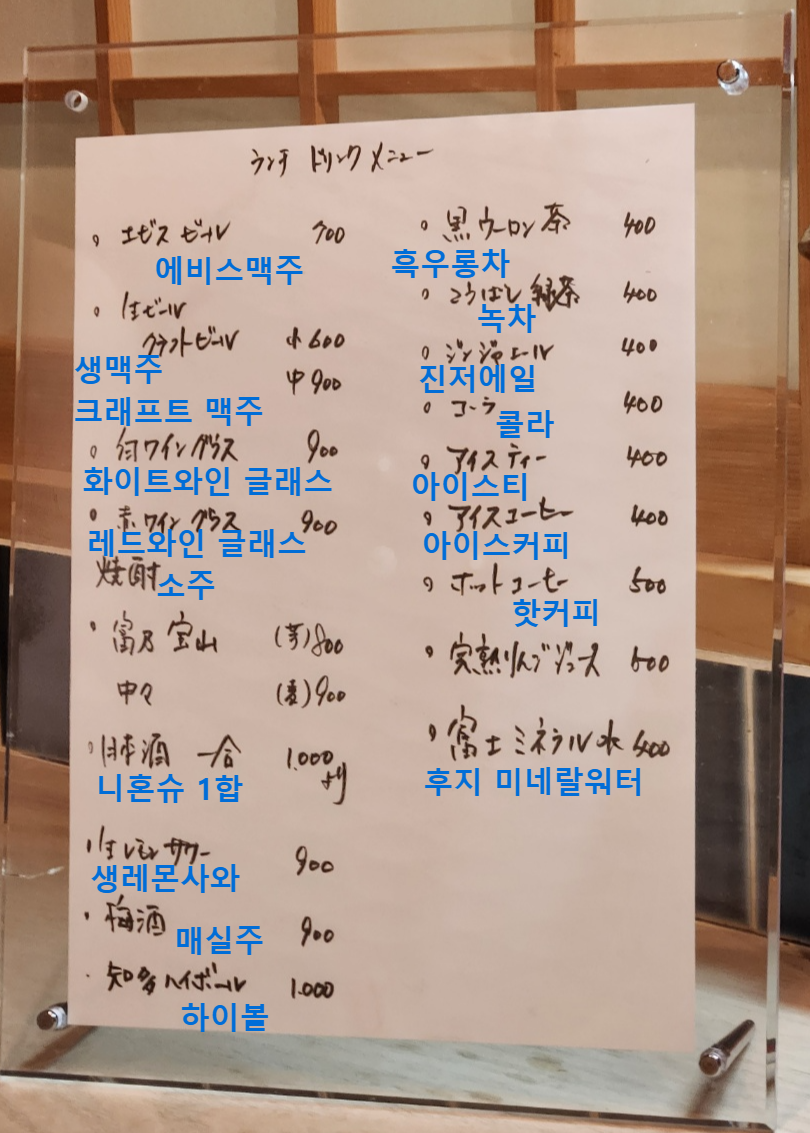 ランチ ドリンクメニュー
・エビスビール 700
에비스맥주
・生ビール
クラフトビール 小 600
생맥주
中 900
크래프트 맥주
・白ワイングラス 900
화이트와인 글래스
・赤ワイングラス 900
레드와인 글래스
焼酎
소주
・富乃宝山 (芋) 800
中々 (麦) 900
・日本酒 一合 1.000より
니혼슈 1합
・生レモンサワー 900
생레몬사와
・梅酒 900
매실주
・知多ハイボール 1.000
하이볼
・黒ウーロン茶 400
흑우롱차
・こうばし緑茶 400
녹차
・ジンジャエール 400
진저에일
・コーラ 400
콜라
・アイスティー 400
아이스티
・アイスコーヒー 400
아이스커피
・ホットコーヒー 500
핫커피
・完熟りんごジュース 500
・富士ミネラル水 400
후지 미네랄워터